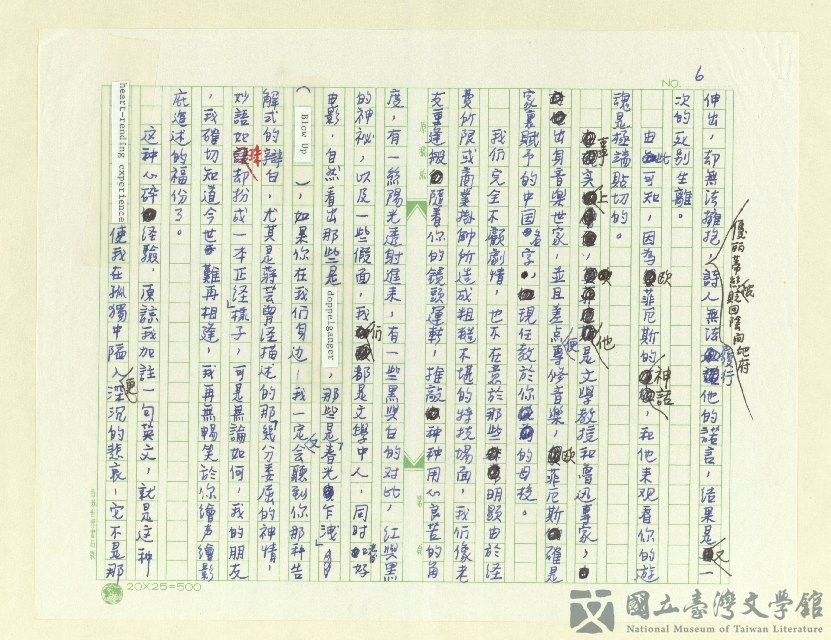 NO. 6
伸出，却無法擁抱，詩人無法履行他的諾言，結果是又一
優麗蒂絲貶回陰間地府
次的死別生離。
由此可知，因為歐菲厄斯的神話，和他來觀看你的遊
魂是極端貼切的。
事實上，他是文學教授和魯迅專家，
出身音樂世家，並且差点便專修音樂，歐菲厄斯確是
家裏賦予的中国名字，現任教於你的母校。
我们完全不顧劇情，也不在意於那些明顯由於经
費所限或商業掛帥所造成粗糙不堪的特技場面，我们像老
友重逢般隨着你的鏡頭運轉，推敲种种用心良苦的角
度，有一絲陽光透射進来，有一些黑與白的对比，红與黑
的神祕，以及一些假面，我们都是文學中人，同时嗜好
电影，自然看出那些是 doppelganger，那些是「春光乍洩」
（Blow Up），如果你在我们身边，我一定又會聽到你那种告
解式的辯白，尤其是蔣芸曾经描述的那「幾分委屈的神情，
妙語如珠却扮成一本正经」樣子，可是無論如何，我的朋友
，我確切知道今世難再相逢，我再無暢笑於你繪声繪影
庇造述的福份了。
這种心碎经驗，原諒我加註一句英文，就是這种
heart-rending experience 便我在孤獨中陷入深沉的悲哀，它不是那
20X25=500
國立臺灣文學館
National Museum of Taiwan Literature